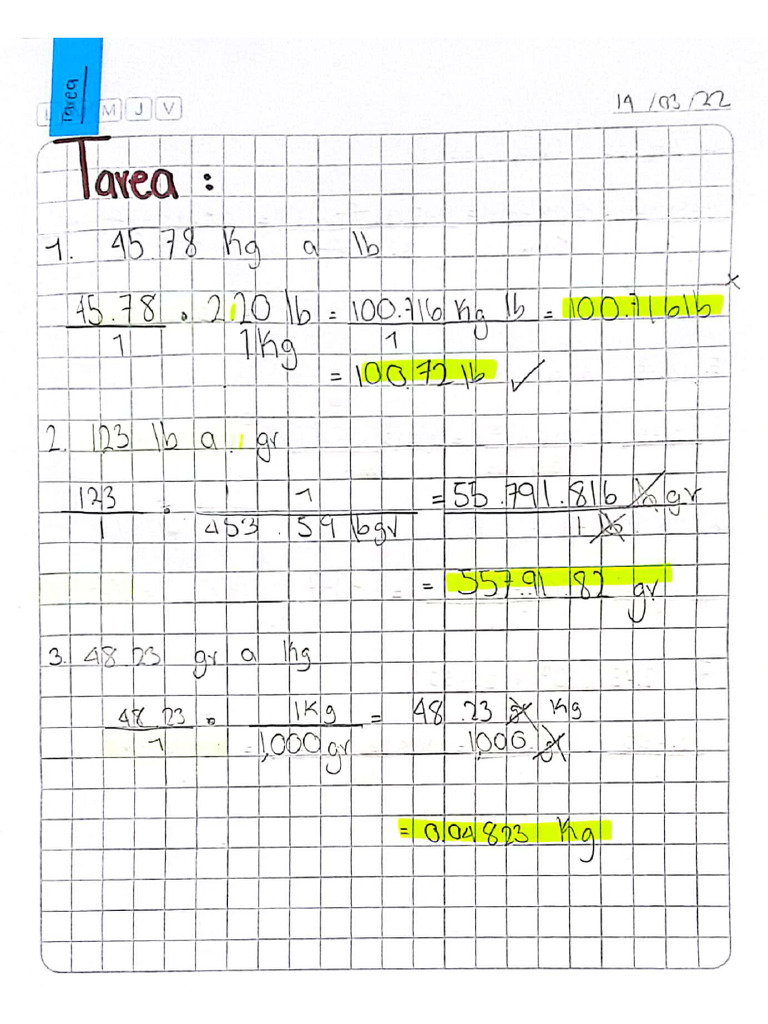 Tarea
M J V
19/03/22
Tarea :
1. 45.78 Kg a lb
45.78/1 · 2.20 lb/1Kg = 100.716 Kg lb/1 = 100.716 lb x
= 100.72 lb ✓
2. 123 lb a gr
123/1 · 1/453.59 lb gr = 55.791.816 lb gr/1 lb
= 55791.82 gr
3. 48.23 gr a Kg
48.23/1 · 1Kg/1,000 gr = 48.23 gr Kg/1,000 gr
= 0.04823 Kg